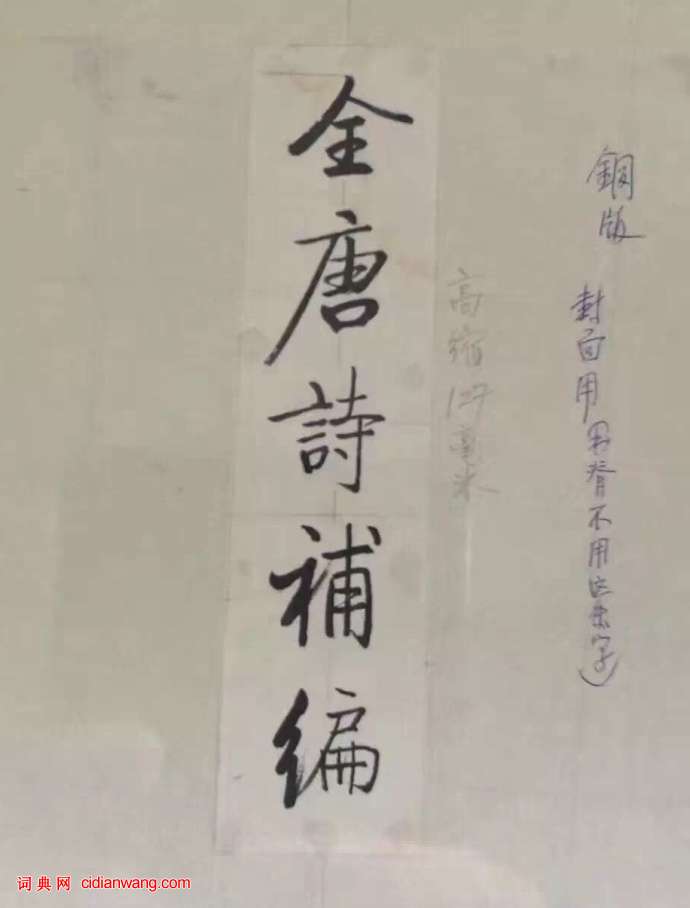 銅版
封面用 书脊不用这条字)
高缩127毫米
全唐詩補編
词典网 cidianwang.com